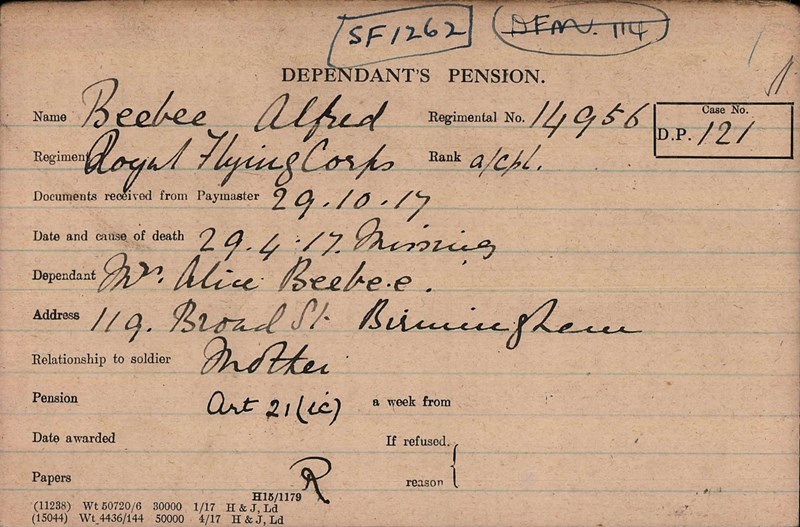 SF1262 DFM. 114
DEPENDANT'S PENSION.
Name Beebee Alfred Regimental No. 14956 Case No.
Regiment Royal Flying Corps Rank a/cpl. D.P. 121
Documents received from Paymaster 29.10.17
Date and cause of death 29.4.17. Missing
Dependant Mrs. Alice Beebee.
Address 119. Broad St. Birmingham
Relationship to soldier Mother
Pension Art 21(ic) a week from
Date awarded If refused,
Papers R reason
H15/1179
(11238) Wt 50720/6 30000 1/17 H & J, Ld
(15044) Wt 4436/144 50000 4/17 H & J, Ld